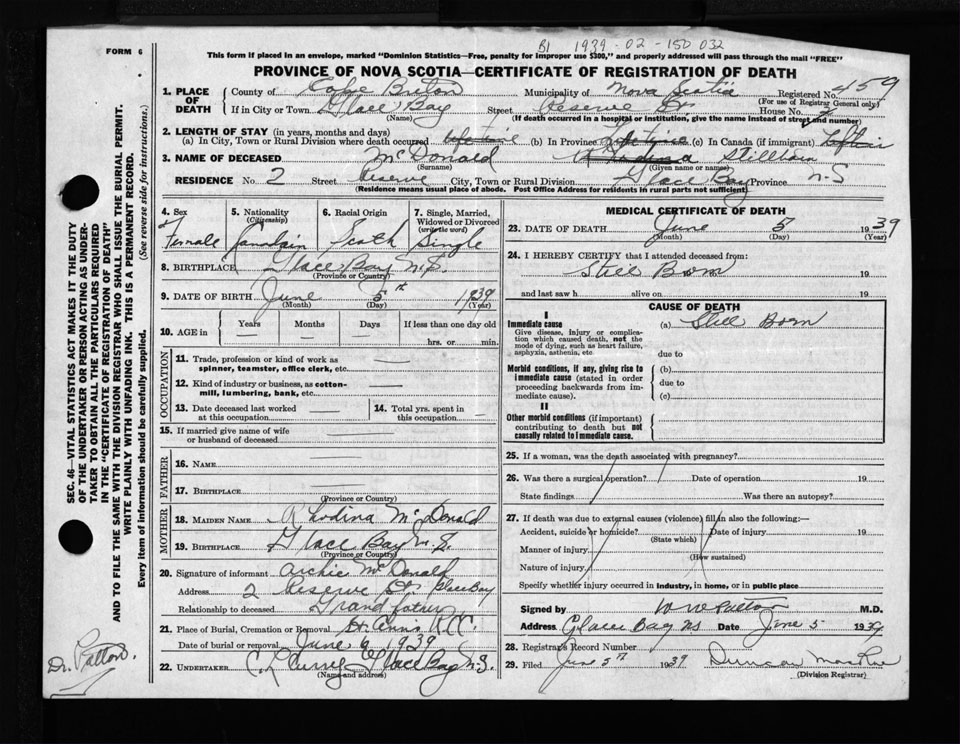 B1 1939-02-150 032
FORM 6
This form if placed in an envelope, marked "Dominion Statistics—Free, penalty for improper use $300," and properly addressed will pass through the mail "FREE"
PROVINCE OF NOVA SCOTIA—CERTIFICATE OF REGISTRATION OF DEATH
1. PLACE OF DEATH
County of Cape Breton Municipality of Nova Scotia Registered No. 459
(For use of Registrar General only)
If in City or Town Glace Bay Street Reserve St. House No. 2
(Name) (If death occurred in a hospital or institution, give the name instead of street and number)
2. LENGTH OF STAY (in years, months and days)
(a) In City, Town or Rural Division where death occurred life time (b) In Province Life time (c) In Canada (if immigrant)
3. NAME OF DECEASED McDonald Rhodina Stillborn
(Surname) (Given name or names)
RESIDENCE No. 2 Street Reserve City, Town or Rural Division Glace Bay Province N.S
(Residence means usual place of abode. Post Office Address for residents in rural parts not sufficient)
4. Sex
Female
5. Nationality
(Citizenship)
Canadain
6. Racial Origin
Scoth
7. Single, Married, Widowed or Divorced
(write the word)
Single
8. BIRTHPLACE Glace Bay N.S.
(Province or Country)
9. DATE OF BIRTH June 5th 1939
(Month) (Day) (Year)
10. AGE in
Years Months Days If less than one day old
hrs. or min.
OCCUPATION
11. Trade, profession or kind of work as
spinner, teamster, office clerk, etc.
12. Kind of industry or business, as cotton-
mill, lumbering, bank, etc.
13. Date deceased last worked
at this occupation
14. Total yrs. spent in
this occupation
15. If married give name of wife
or husband of deceased
FATHER
16. NAME
17. BIRTHPLACE
(Province or Country)
MOTHER
18. MAIDEN NAME Rhodina McDonald
19. BIRTHPLACE Glace Bay N.S.
(Province or Country)
20. Signature of informant Archie McDonald
Address 2 Reserve St. Glace Bay
Relationship to deceased Grand father
21. Place of Burial, Cremation or Removal St Anns R.C.
Date of burial or removal June 6 1939
22. UNDERTAKER Glace Bay N.S.
(Name and address)
MEDICAL CERTIFICATE OF DEATH
23. DATE OF DEATH June 5 1939
(Month) (Day) (Year)
24. I HEREBY CERTIFY that I attended deceased from:
Still Born 19
and last saw h alive on 19
CAUSE OF DEATH
I
Immediate cause
Give disease, injury or complication which caused death, not the mode of dying, such as heart failure, asphyxia, asthenia, etc
(a) Still Born
due to
Morbid conditions, if any, giving rise to immediate cause (stated in order proceeding backwards from immediate cause).
(b)
due to
(c)
II
Other morbid conditions (if important) contributing to death but not causally related to immediate cause.
25. If a woman, was the death associated with pregnancy?
26. Was there a surgical operation? Date of operation 19
State findings Was there an autopsy?
27. If death was due to external causes (violence) fill in also the following:—
Accident, suicide or homicide? Date of injury 19
(State which)
Manner of injury
(How sustained)
Nature of injury
Specify whether injury occurred in industry, in home, or in public place
Signed by M.D.
Address Glace Bay NS Date June 5 1939
28. Registrars Record Number
29. Filed June 5th 1939 Duncan
(Division Registrar)
SEC. 46—VITAL STATISTICS ACT MAKES IT THE DUTY
OF THE UNDERTAKER OR PERSON ACTING AS UNDER-
TAKER TO OBTAIN ALL THE PARTICULARS REQUIRED
IN THE "CERTIFICATE OF REGISTRATION OF DEATH"
AND TO FILE THE SAME WITH THE DIVISION REGISTRAR WHO SHALL ISSUE THE BURIAL PERMIT.
WRITE PLAINLY WITH UNFADING INK. THIS IS A PERMANENT RECORD.
Every item of information should be carefully supplied. (See reverse side for instructions.)
Dr. Patton.